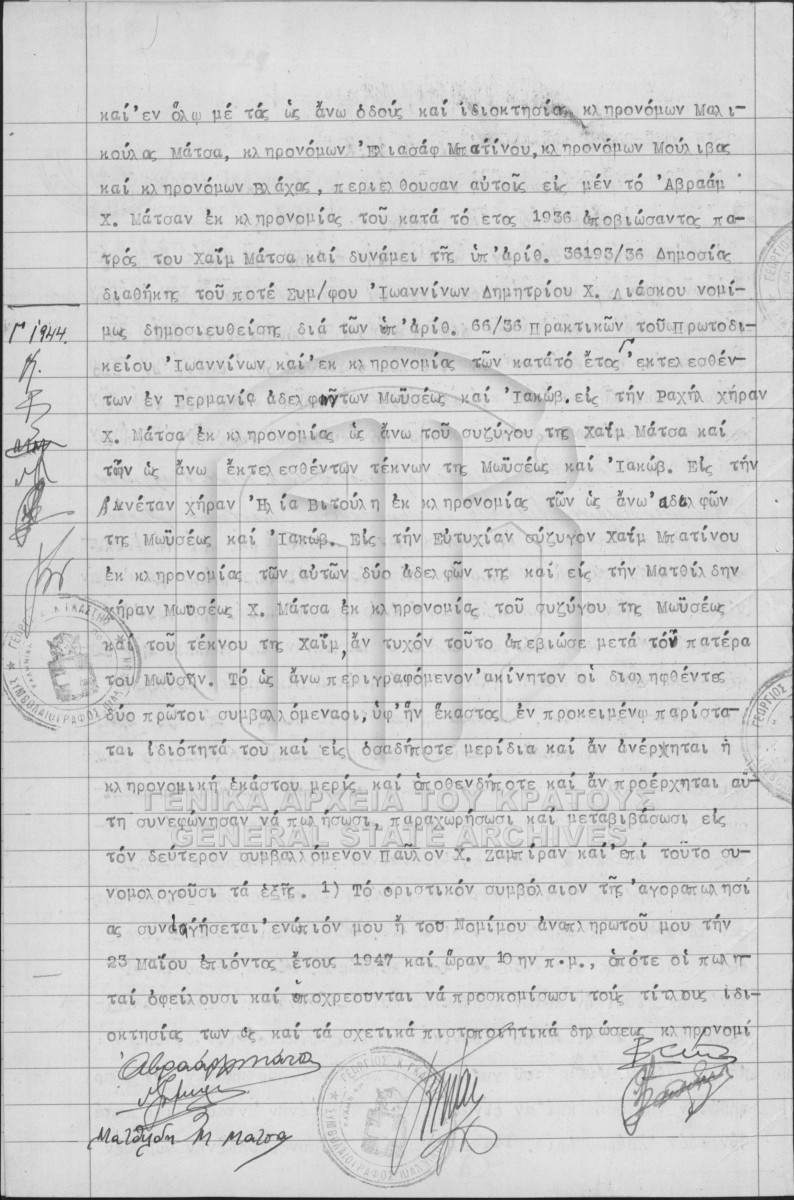 καί 'εν ὅλῳ μέ τάς ὡς ἄνω ὁδούς καί ἰδιοκτησίας κληρονόμων Μαλι-
κούλας Μάτσα, κληρονόμων 'Ελιασάφ Μπατίνου, κληρονόμων Μούλιβας
καί κληρονόμων Βλάχας, περιελθουσαν αὐτοῖς εἰς μέν τό 'Αβραάμ
Χ. Μάτσαν ἐκ κληρονομίας τοῦ κατά τό ετος 1936 ἀποβιώσαντος πα-
τρός του Χαΐμ Μάτσα καί δυνάμει τῆς ὑπ'ἀρίθ. 36193/36 Δημοσίας
διαθήκης τοῦ ποτέ Συμ/φου 'Ιωαννίνων Δημητρίου Χ. Λιάσκου νομί-
μως δημοσιευθείσης διά τῶν ὑπ'ἀρίθ. 66/36 πρακτικῶν τοῦ Πρωτοδι-
Γ 1944.
κείου 'Ιωαννίνων καί 'εκ κληρονομίας τῶν κατάτό ἔτος Γ'εκτελεσθέν-
των ἐν Γερμανίᾳ ἀδελφῶντων Μωϋσέως καί 'Ιακώβ. εἰς τήν Ραχήλ χήραν
Χ. Μάτσα ἐκ κληρονομίας ὡς ἄνω τοῦ συζύγου της Χαΐμ Μάτσα καί
τῶν ὡς ἄνω ἐκτελεσθέντων τέκνων της Μωϋσέως καί 'Ιακώβ. Εἰς τήν
'Αννέταν χήραν 'Ηλία Βιτούλη ἐκ κληρονομίας τῶν ὡς ἄνω 'αδελφῶν
της Μωϋσέως καί 'Ιακώβ. Εἰς τήν Εὐτυχίαν σύζυγον Χαΐμ Μπατίνου
ἐκ κληρονομίας τῶν αὐτῶν δύο ἀδελφῶν της καί εἰς τήν Ματθίλδην
χήραν Μωυσέως Χ. Μάτσα ἐκ κληρονομίας τοῦ συζύγου της Μωϋσέως
καί τοῦ τέκνου της Χαΐμ, ἄν τυχόν τοῦτο ἀπεβίωσε μετά τόν πατέρα
του Μωϋσῆν. Τό ὡς ἄνω περιγραφόμενον 'ακίνητον οἱ διαληφθέντες
δύο πρῶτοι συμβαλλόμεναοι, ὑφ'ἥν ἕκαστος ἐν προκειμένῳ παρίστα-
ται ἰδιότητά του καί εἰς ὁσαδήποτε μερίδια καί ἄν ἀνέρχηται ἡ
κληρονομική ἑκάστου μερίς καί ὁποθενδήποτε καί ἄν προέρχηται αὕ-
τη συνεφώνησαν νά πωλήσωσι, παραχωρήσωσι καί μεταβιβάσωσι εἰς
τόν δεύτερον συμβαλλόμενον Παῦλον Χ. Ζαμπίραν καί 'επί τοῦτο συ-
νομολογοῦσι τά ἑξῆς. 1) Τό ὁριστικόν συμβόλαιον τῆς 'αγοραπωλησί
ας συναφθήσεται 'ενώπιόν μου ἤ του Νομίμου ἀναπληρωτοῦ μου τήν
23 Μαΐου ἐπιόντος ἔτους 1947 καί ὥραν 10ην π.μ., ὁπότε οἱ πωλη-
ταί ὀφείλουσι καί ὑποχρεουνται νά προσκομίσωσι τούς τίτλους ἰδι-
οκτησίας των ὡς καί τά σχετικά πιστοποιητικά δηλώσεως κληρονομί
'Αβραάμ Μάτσα
Ματθίλδη Μ Ματσα
ΓΕΝΙΚΑ ΑΡΧΕΙΑ ΤΟΥ ΚΡΑΤΟΥΣ
GENERAL STATE ARCHIVES